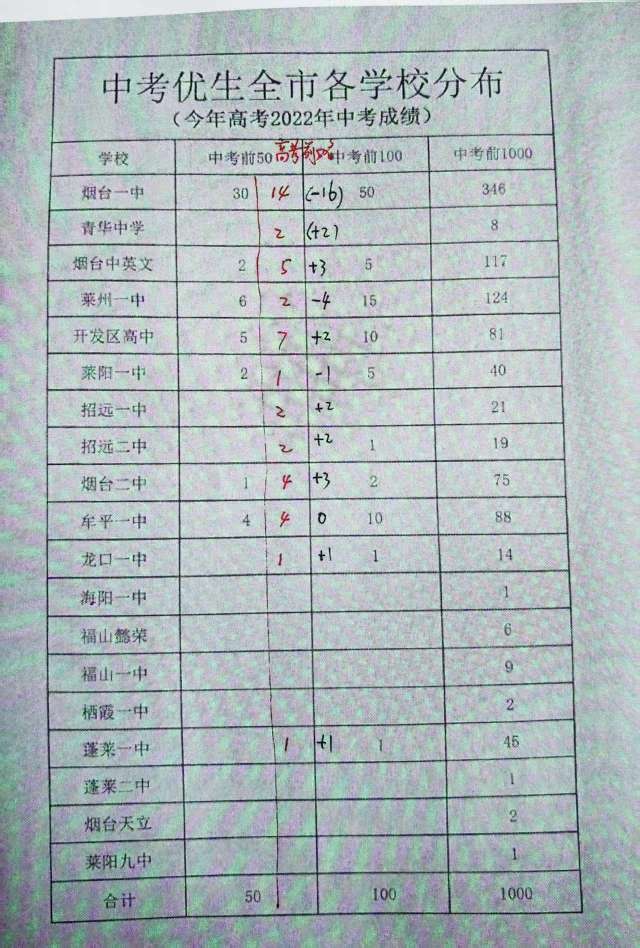 中考优生全市各学校分布
(今年高考2022年中考成绩)
学校 中考前50 高考前50名 中考前100 中考前1000
烟台一中 30 14 (-16) 50 346
青华中学 2 (+2) 8
烟台中英文 2 5 +3 5 117
莱州一中 6 2 -4 15 124
开发区高中 5 7 +2 10 81
莱阳一中 2 1 -1 5 40
招远一中 2 +2 21
招远二中 2 +2 1 19
烟台二中 1 4 +3 2 75
牟平一中 4 4 0 10 88
龙口一中 1 +1 1 14
海阳一中 1
福山懿荣 6
福山一中 9
栖霞一中 2
蓬莱一中 1 +1 1 45
蓬莱二中 1
烟台天立 2
莱阳九中 1
合计 50 100 1000